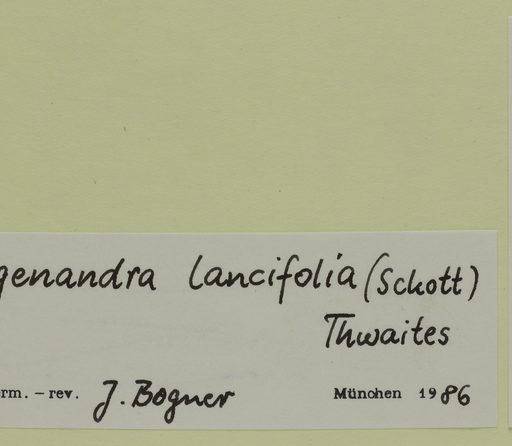 genandra lancifolia (Schott)
Thwaites
rm. – rev. J. Bogner München 1986